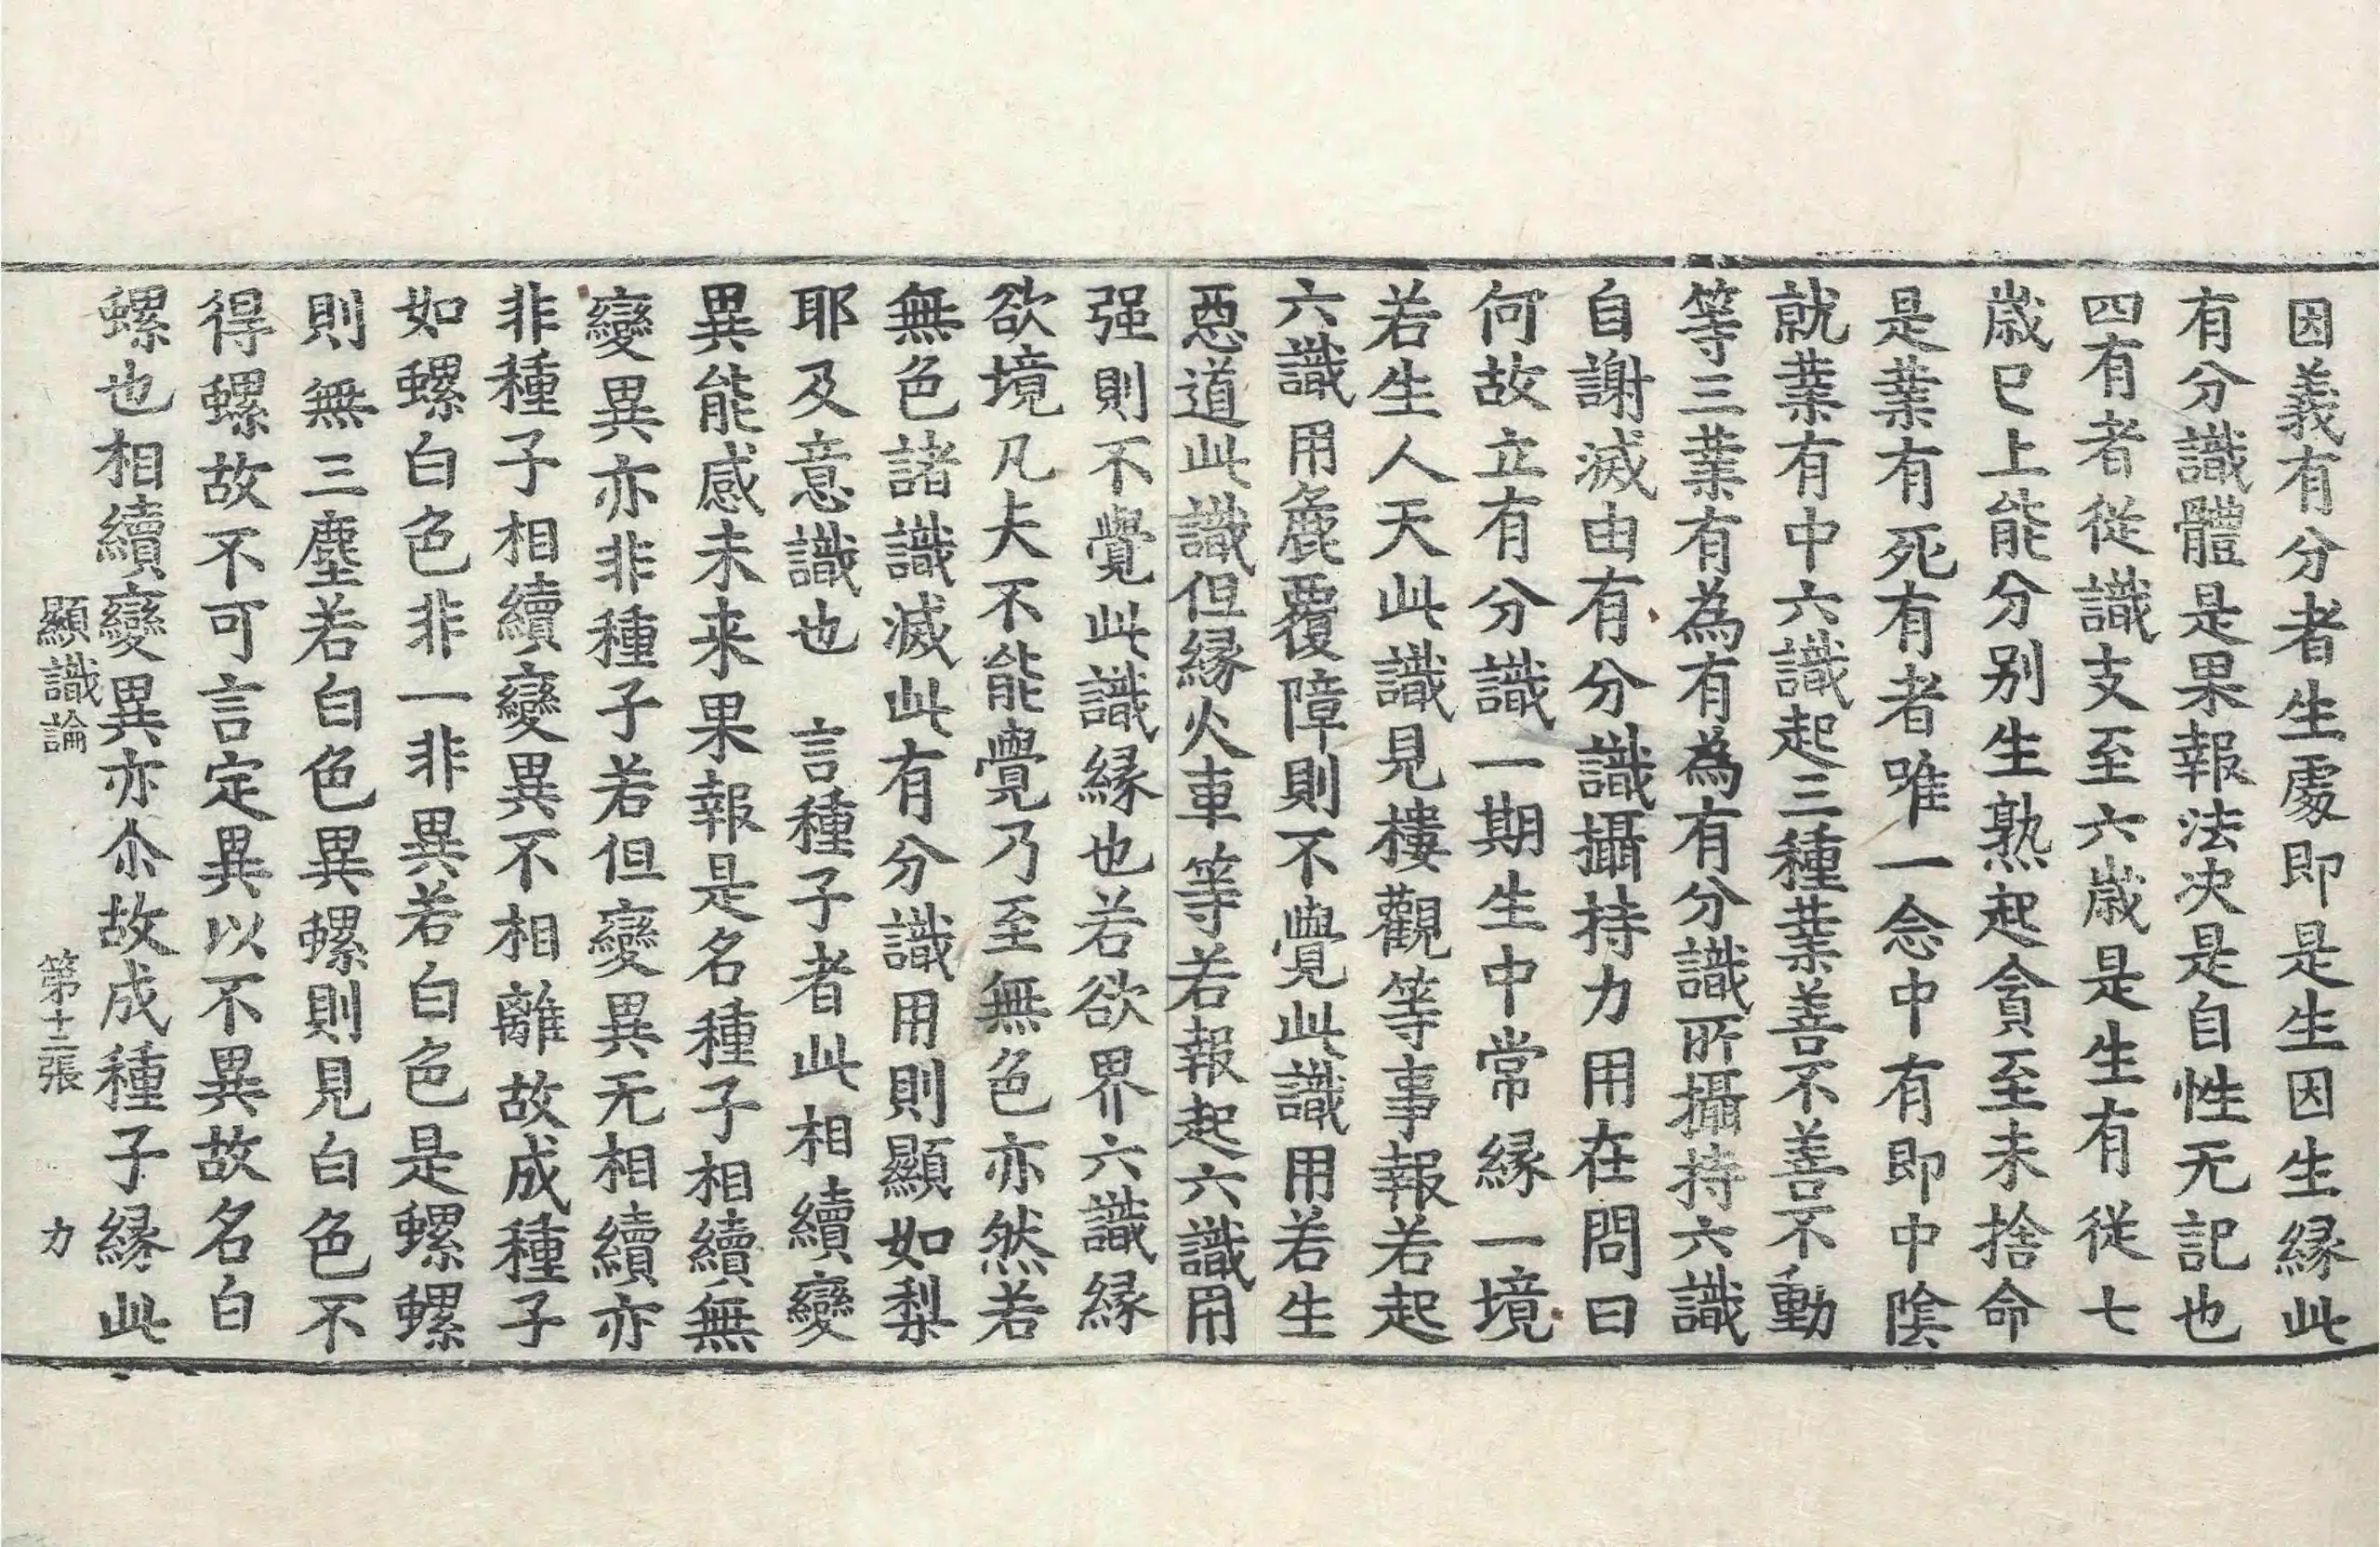 因義有分者生處即是生因生緣此
有分識體是果報法决是自性无記也
四有者從識支至六歲是生有從七
歲已上能分别生熟起貪至未捨命
是業有死有者唯一念中有即中陰
就業有中六識起三種業善不善不動
等三業有為有為有分識所攝持六識
自謝滅由有分識攝持力用在問曰
何故立有分識一期生中常緣一境
若生人天此識見樓觀等事報若起
六識用麁覆障則不覺此識用若生
惡道此識但緣火車等若報起六識用
强則不覺此識緣也若欲界六識緣
欲境凡夫不能覺乃至無色亦然若
無色諸識滅此有分識用則顯如梨
耶及意識也　言種子者此相續變
異能感未来果報是名種子相續無
變異亦非種子若但變異无相續亦
非種子相續變異不相離故成種子
如螺白色非一非異若白色是螺螺
則無三塵若白色異螺則見白色不
得螺故不可言定異以不異故名白
螺也相續變異亦尒故成種子緣此
顯識論　第十三張　力